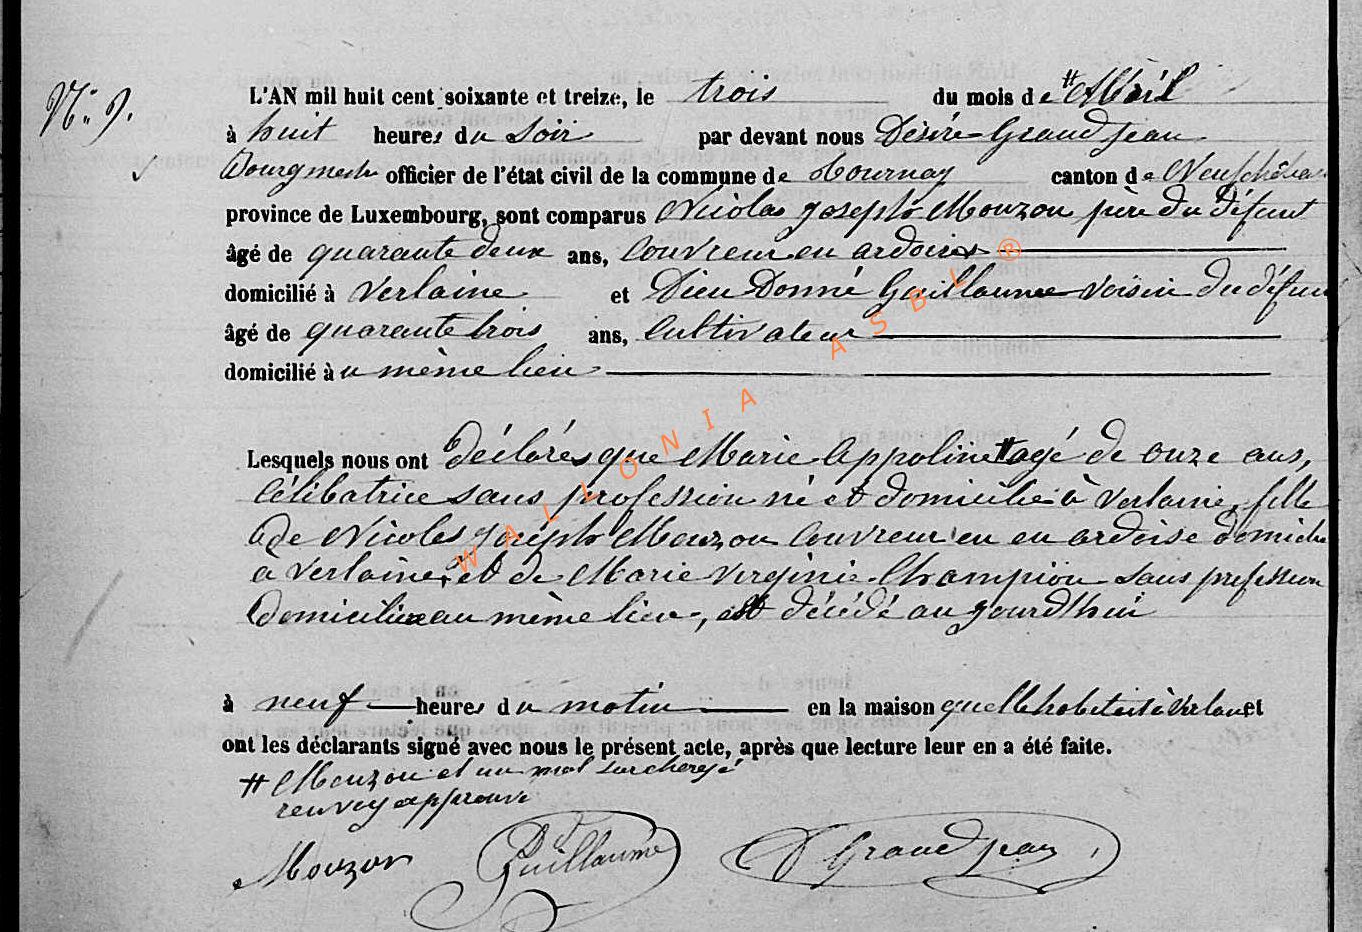 N° 9.
L'AN mil huit cent soixante et treize, le trois du mois de # Avril
à huit heures du Soir par devant nous Désiré Grandjean
Bourgmestre officier de l'état civil de la commune de Tournay canton de Neufchâteau
province de Luxembourg, sont comparus Nicolas Joseph Mouzon père du défunt
âgé de quarante deux ans, Couvreur en ardoises
domicilié à Verlaine et Dieu Donné Guillaume voisin du défunt
âgé de quarante trois ans, Cultivateur
domicilié à u même lieu
Lesquels nous ont déclarés que Marie Appoline # agé de onze ans,
Célibatrice sans profession né et domicilié à Verlaine, fille
de Nicolas Joseph Mouzon Couvreur en en ardoise domicilié
a Verlaine, et de Marie Virginie Champion sans profession
domiciliée au même lieu, est décédé au jourd'hui
à neuf heures du matin en la maison quelle habitait à Verlaine et
ont les déclarants signé avec nous le présent acte, après que lecture leur en a été faite.
# Mouzon et un mot surchargé
renvoy approuvé
Mouzon D Guillaume D Grandjean
WALLONIA ASBL ®